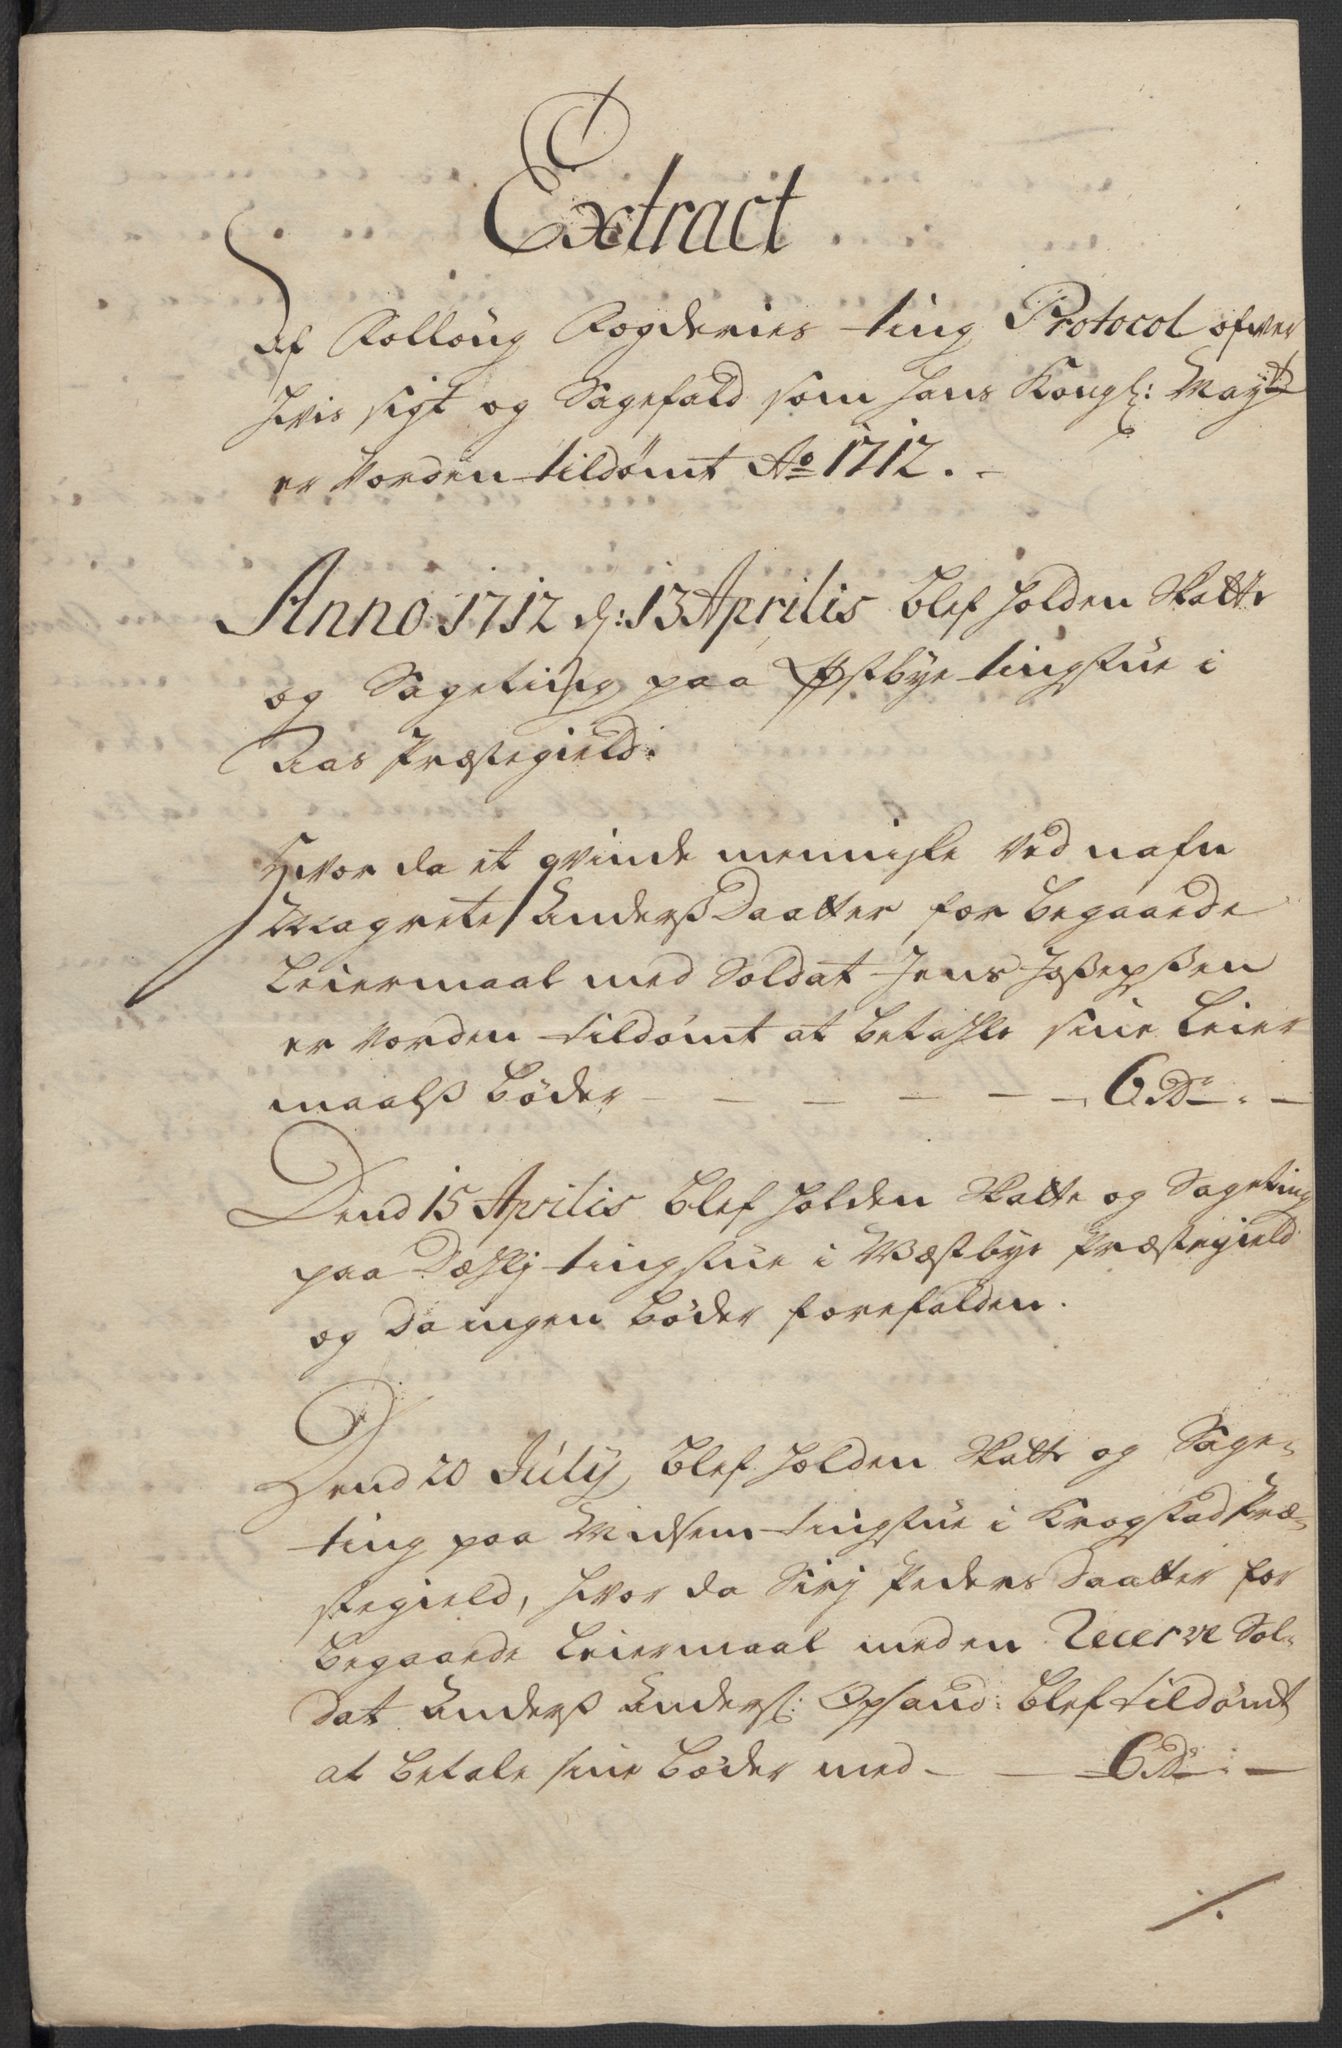 Extract
Af Folloug Fogderies ting Protocol ofver
hvis sigt og Sagefald som Hans Kongl: Mayt
er vorden tildömt Ao 1712. -
Anno 1712 d: 13 Aprilis blef holden Skatte
og Sageting paa Østbye tingstue i
Aas Præstegield:
Hvor da et qvinde menniske ved nafn
Magrete Anderß Daatter for begaaede
Leiermaal med Soldat Jens Joßepßen
er vorden tildömt at betahle sine Leier
maalß böder - - - - - 6 Dr - . -
Dend 15 Aprilis blef holden Skatte og Sageting
paa Dæhlj tingstue i Wæstbye Præstegield
og da ingen böder forefalden.
Dend 20 July blef holden Skatte og Sage-
ting paa Midsem tingstue i Krogstad Præ-
stegield, hvor da Sirj Peders Daatter for
begaaede Leiermaal med en Recerve Sol-
dat Anderß Andersl: Opsand: blef tildömt
at betale sine böder med - - 6 Dr : -
/.